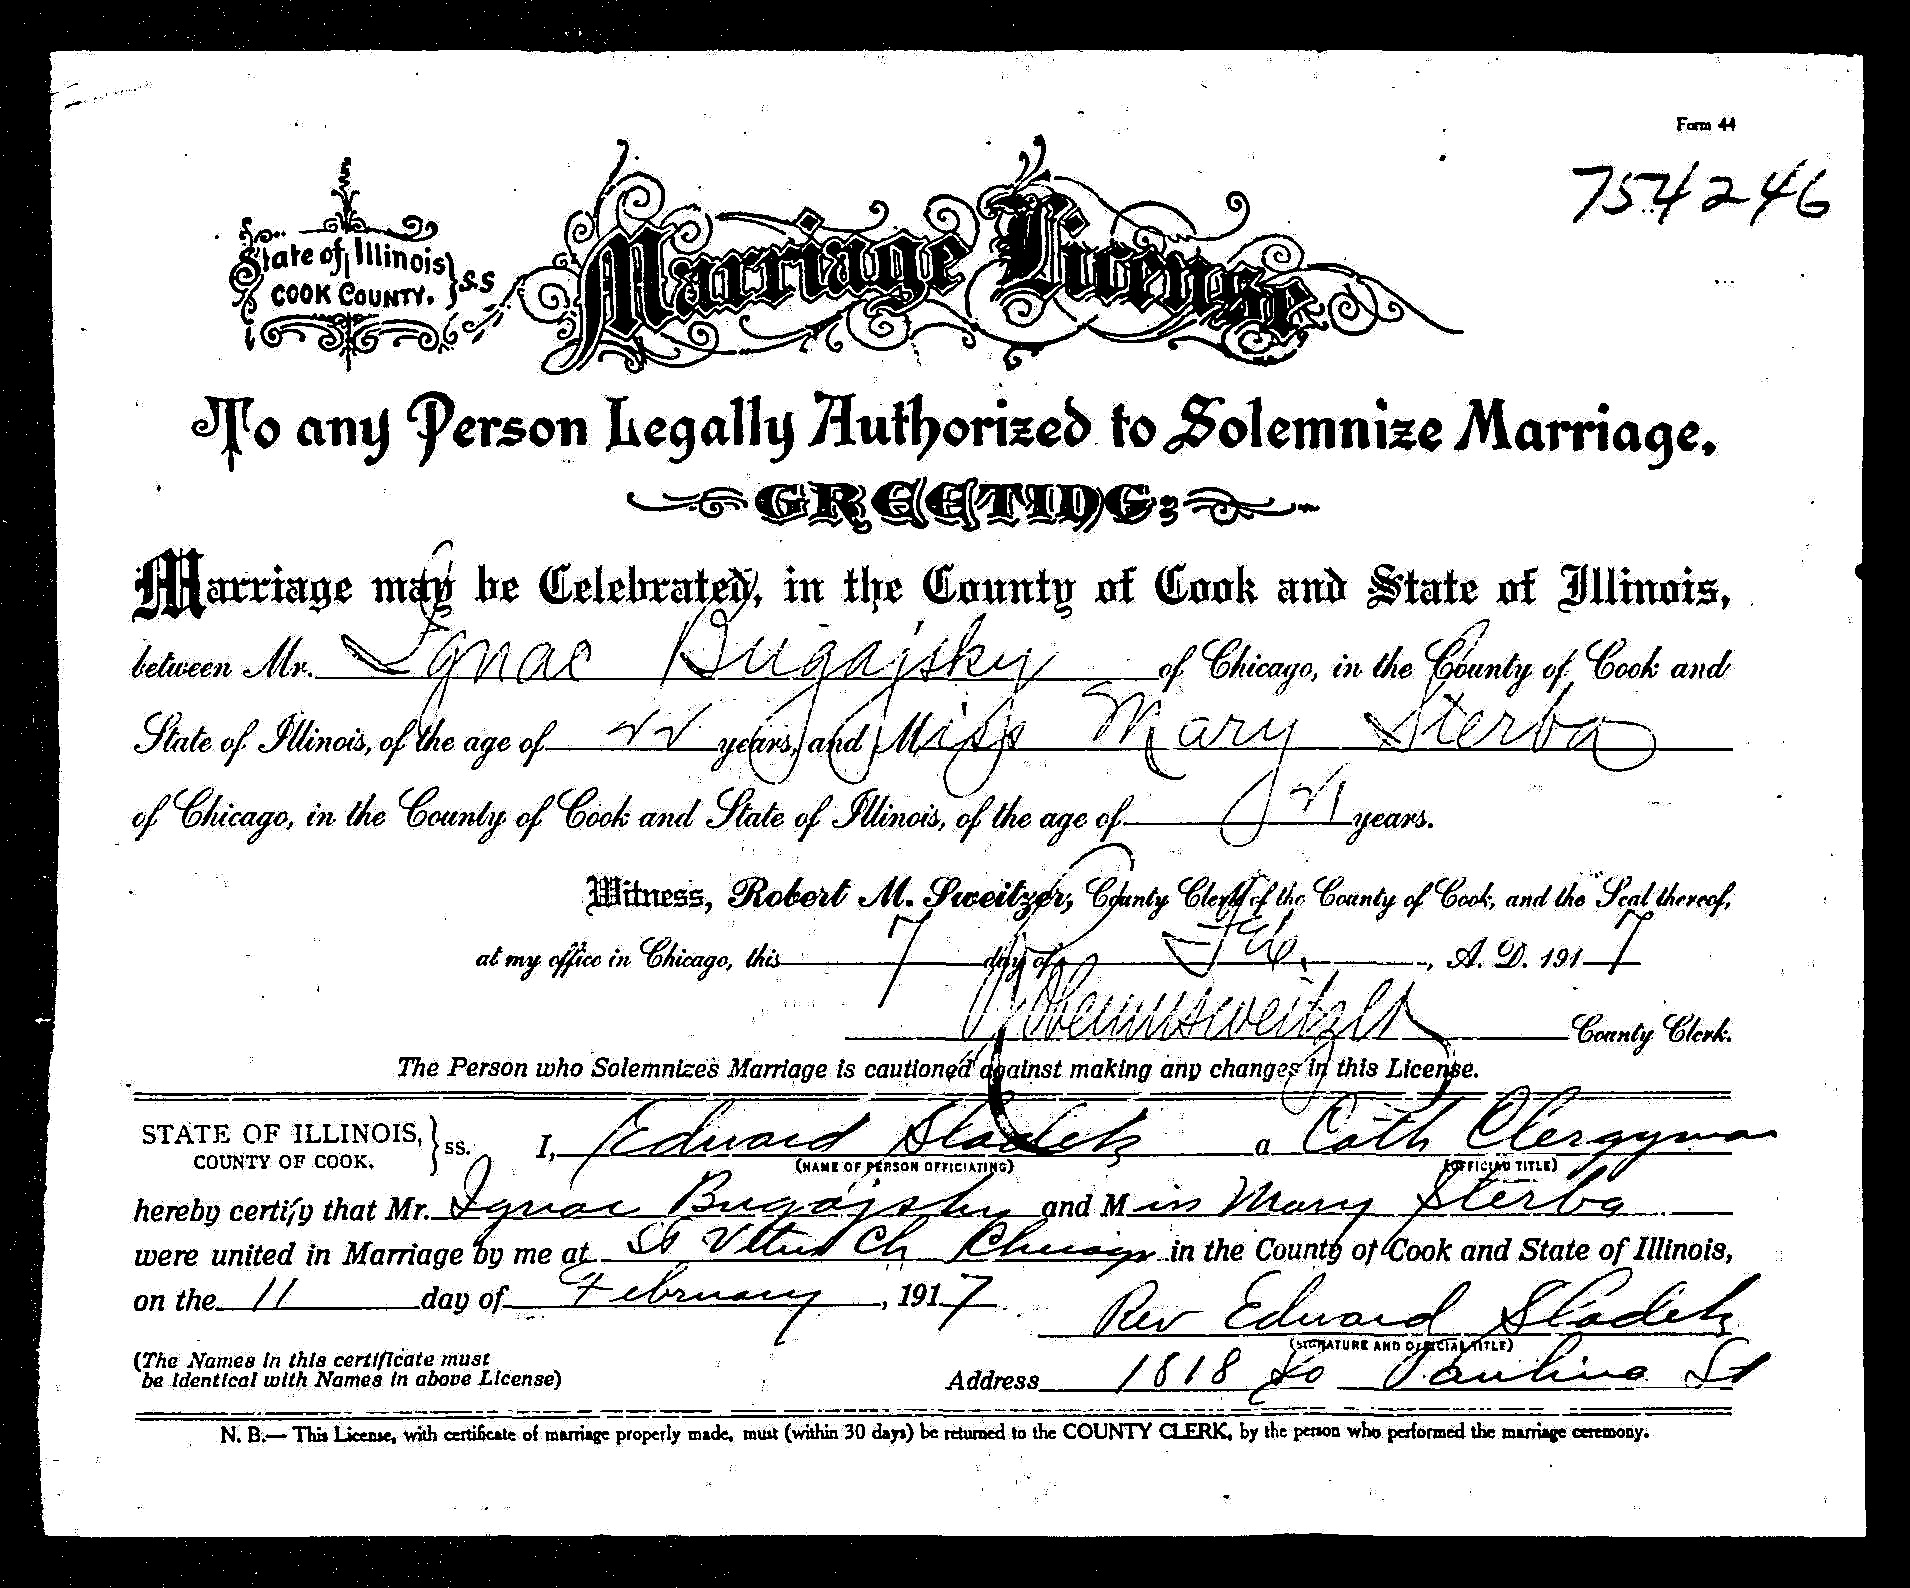 Form 44
754246
State of Illinois } S.S
COOK COUNTY.
Marriage License
To any Person Legally Authorized to Solemnize Marriage.
GREETING:
Marriage may be Celebrated, in the County of Cook and State of Illinois,
between Mr. Ignac Bugajsky of Chicago, in the County of Cook and
State of Illinois, of the age of 22 years, and Miss Mary Sterba
of Chicago, in the County of Cook and State of Illinois, of the age of 21 years.
Witness, Robert M. Sweitzer, County Clerk of the County of Cook, and the Seal thereof,
at my office in Chicago, this 7 day of Feb. , A. D. 1917
Robert M Sweitzer County Clerk.
The Person who Solemnizes Marriage is cautioned against making any changes in this License.
STATE OF ILLINOIS, } ss. I, Edward Sladek a Cath Clergyman
COUNTY OF COOK. (NAME OF PERSON OFFICIATING) (OFFICIAL TITLE)
hereby certify that Mr. Ignac Bugajsky and Miss Mary Sterba
were united in Marriage by me at St Vitus Ch Chicago in the County of Cook and State of Illinois,
on the 11 day of February , 1917
Rev Edward Sladek
(SIGNATURE AND OFFICIAL TITLE)
(The Names in this certificate must
be identical with Names in above License)
Address 1818 So Paulina St
N. B.— This License, with certificate of marriage properly made, must (within 30 days) be returned to the COUNTY CLERK, by the person who performed the marriage ceremony.